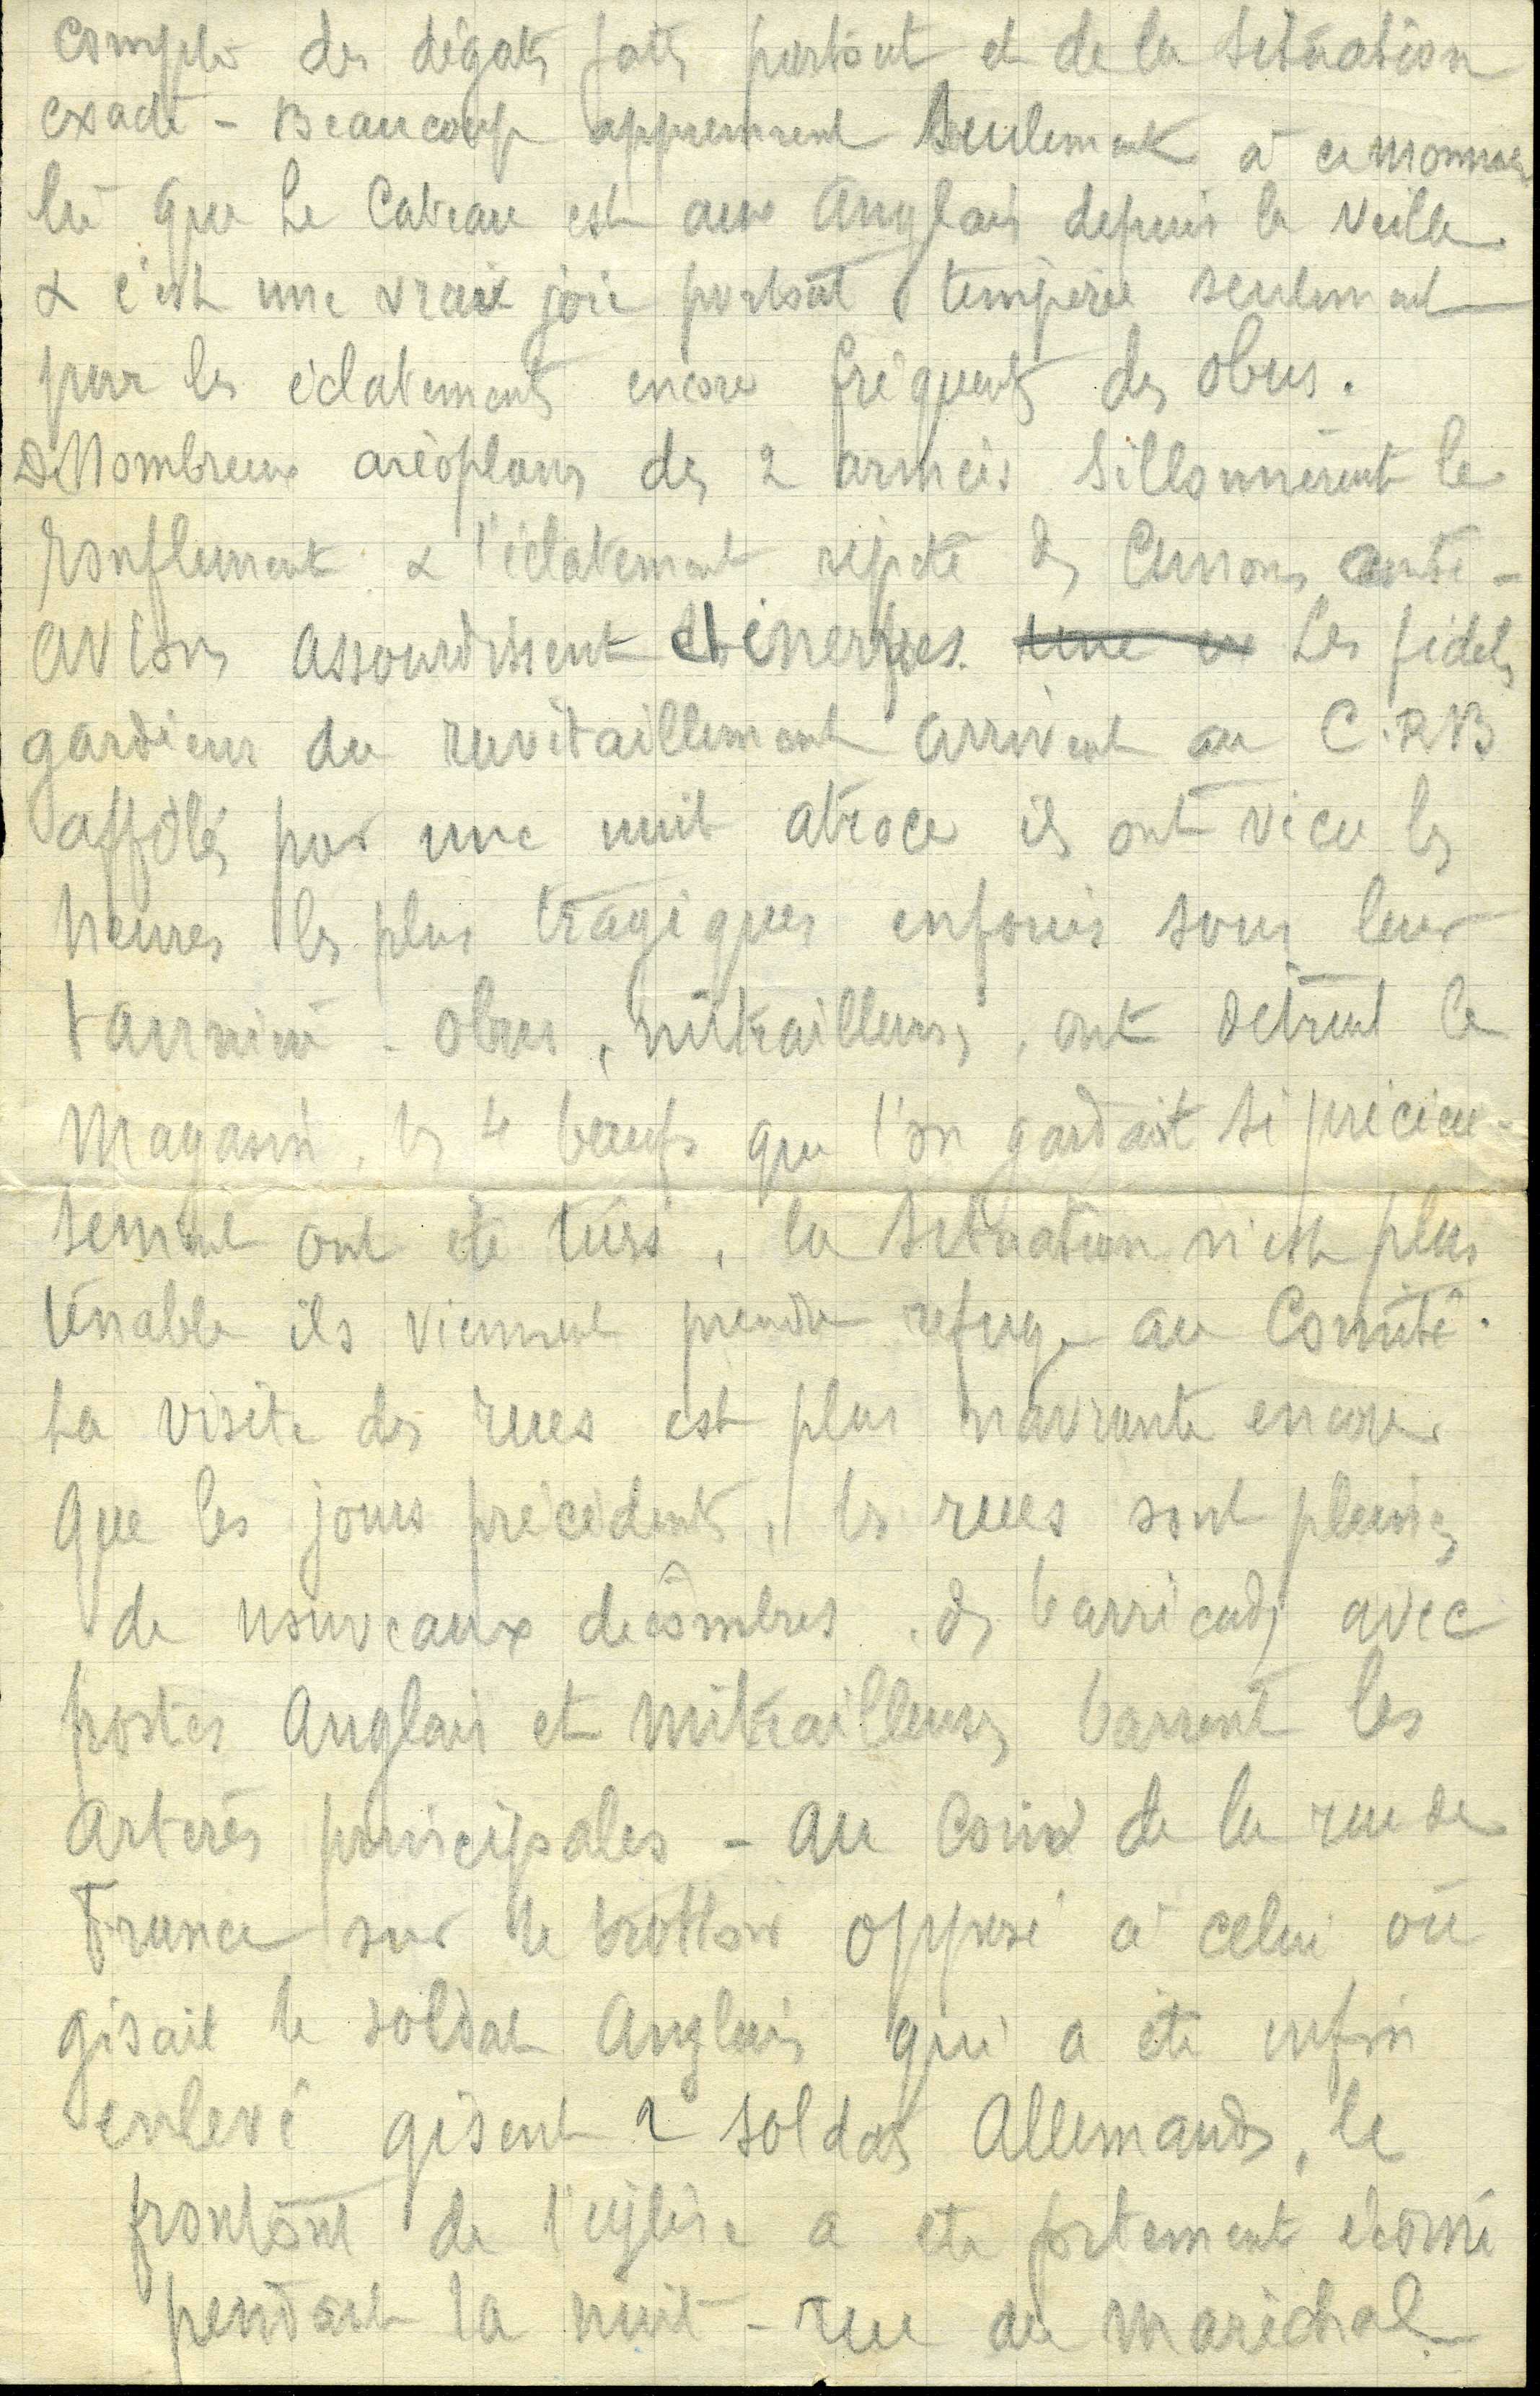 compte des dégats faits partout et de la situation
exacte - Beaucoup apprennent seulement à ce moment
là que Le Cateau est aux Anglais depuis la veille
& c'est une vraie joie partout tempérée seulement
par les éclatements encore fréquents des obus.
De Nombreux aréoplans des 2 armées sillonnèrent le
ronflement & l'éclatement répété des canons anti-
avions assourdissent et
 Les fidels
gardiens du ravitaillement arrivent au C.R.B
affolés par une nuit atroce ils ont vécu les
heures les plus tragiques enfouis sous leur
tannière - obus, mitrailleuses, ont détruit le
Magasin, les 4 bœufs que l'on gardait si précieu-
sement ont été tués, la situation n'est plus
tenable ils viennent prendre refuge au Comité.
La visite des rues est plus navrante encore
que les jours précédents, les rues sont pleines
de nouveaux décombres, des barricades avec
postes Anglais et mitrailleuses barrent les
artères principales - au coin de la rue de
France sur le trottoir opposé à celui où
gisait le soldat Anglais qui a été enfin
enlevé gisent 2 soldats Allemands, le
fronton de l'église a été fortement écorné
pendant la nuit - rue du Maréchal